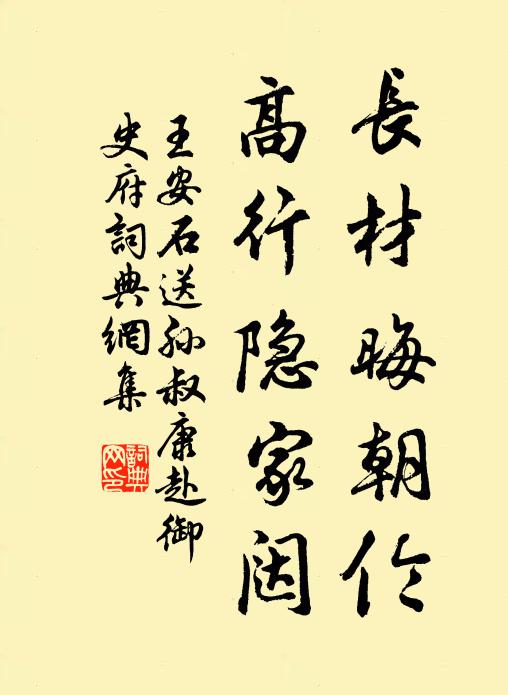 長材晦朝伶
高行隐家閎
王安石送孙叔康赴御
史府詞典網集
詞典
网印